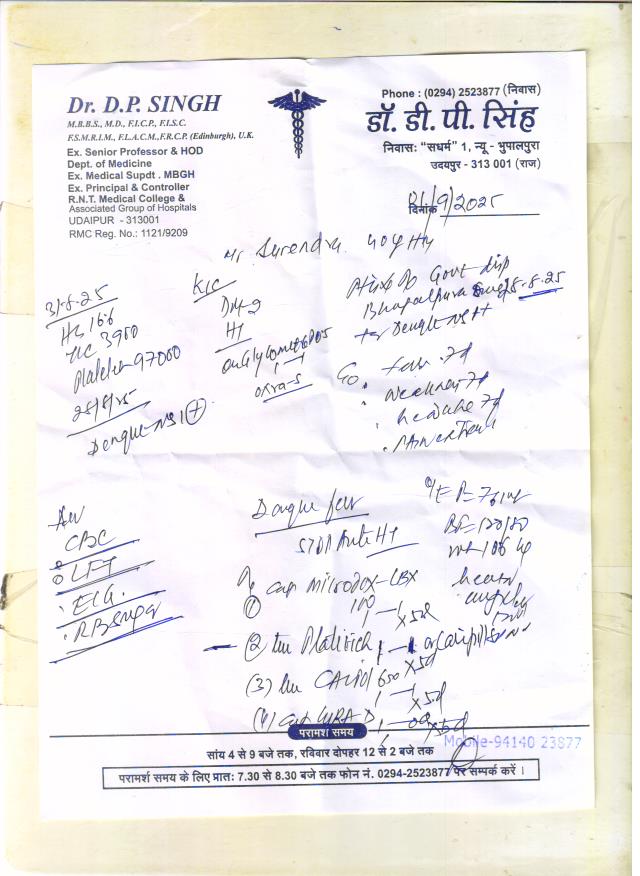 Dr. D.P. SINGH
M.B.B.S., M.D., F.I.C.P., F.I.S.C.
F.S.M.R.I.M., F.L.A.C.M., F.R.C.P. (Edinburgh), U.K.
Ex. Senior Professor & HOD
Dept. of Medicine
Ex. Medical Supdt . MBGH
Ex. Principal & Controller
R.N.T. Medical College &
Associated Group of Hospitals
UDAIPUR - 313001
RMC Reg. No.: 1121/9209
Phone : (0294) 2523877 (निवास)
डॉ. डी. पी. सिंह
निवासः "सधर्म" 1, न्यू - भुपालपुरा
उदयपुर - 313 001 (राज)
दिनांक /9/2025
Mr Surendra 40y
31-8-25
Hb 16.6
TLC 3900
Platelet 97000
28/8/25
Dengue NS1 +
K/C
DM-2
HT
Govt disp
Bhupalpura 28-8-25
for Dengue NS1
C/o fever 7d
weakness 7d
headache 7d
Adv
CBC
LFT
ECG.
RBSugar
Dengue fever
STOP Anti HT
O/E
BP=120/80
heart
① cap Microdox-LBX
100
1 — 1 x5d
② tab 1 — 1 or
x5d
(3) tab CALPOL 650
1 — 1 x5d
(4) cap D 1 — x5d
परामर्श समय
सांय 4 से 9 बजे तक, रविवार दोपहर 12 से 2 बजे तक
Mobile-94140 23877
परामर्श समय के लिए प्रातः 7.30 से 8.30 बजे तक फोन नं. 0294-2523877 पर सम्पर्क करें ।